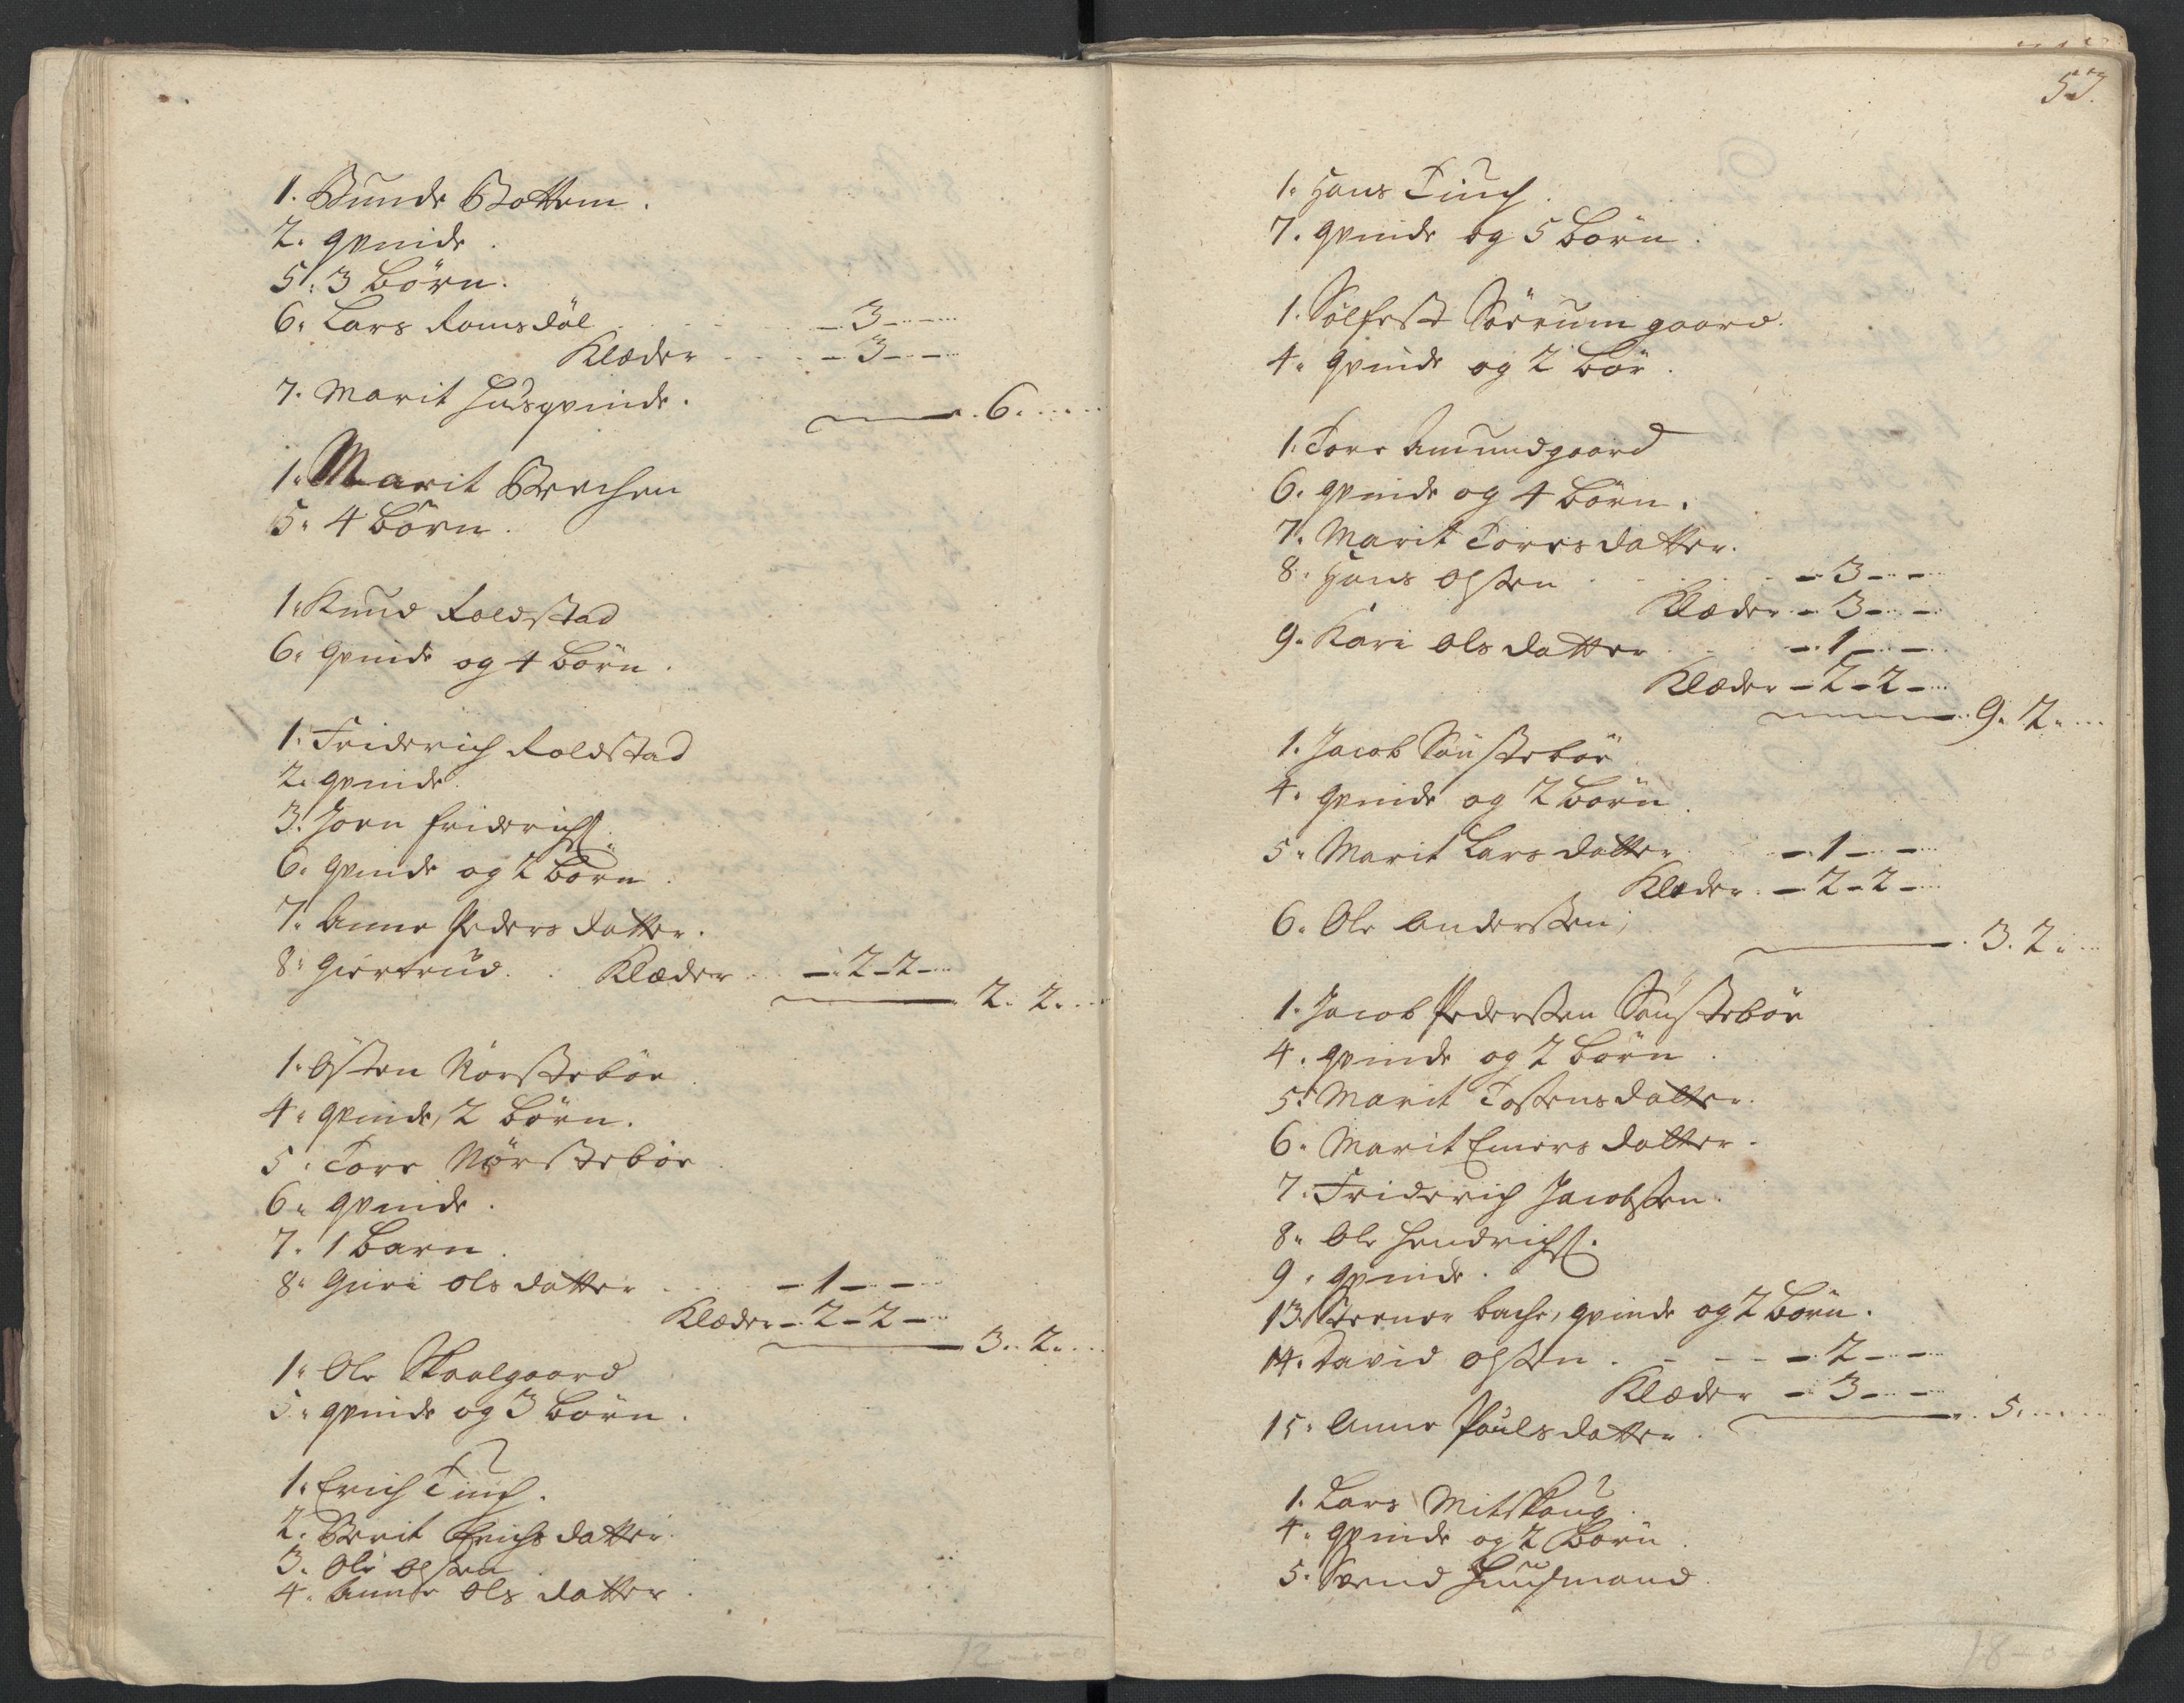 1. Gunde Bottem.
2. qvinde.
5. 3 börn.
6. Lars Romsdöl - 3 - -
Klæder - 3 - -
7. Marit Husqvinde.
6.
1. Marit Brechen
5. 4 börn.
1. Knud Roldstad
6. qvinde og 4 börn.
1. Friderich Roldstad
2. qvinde.
3. Joen Friderichs.
6. qvinde og 2 börn.
7. Anne Pedersdatter.
8. Giertrud. Klæder - 2 - 2 -
2. 2.
1. Østen Nörstebör
4. qvinde, 2 börn.
5. Tore Nörstebör
6. qvinde.
7. 1 barn.
8. Guri Olsdatter - 1 - -
Klæder - 2 - 2 -
3. 2.
1. Ole Skaalgaard
5. qvinde og 3 börn.
1. Erich Tiuch.
2. Berit Erichsdatter.
3. Ole Olsen
4. Anne Olsdatter.
12 - - 0
57.
1. Hans Tiuch.
7. qvinde og 5 börn.
1. Sölfest Sörum gaard.
4. qvinde og 2 bör.
1. Tore Amundgaard
6. qvinde og 4 börn.
7. Marit Toresdatter.
8. Hans Olsen - 3 - -
Klæder - 3 - -
9. Kari Olsdatter - 1 - -
Klæder - 2 - 2 -
9. 2.
1. Jacob Söustebör
4. qvinde og 2 börn.
5. Marit Larsdatter - 1 - -
Klæder - 2 - 2 -
6. Ole Andersen,
3. 2.
1. Jacob Pedersen Söustebör
4. qvinde og 2 börn.
5. Marit Tostensdatter.
6. Marit Emersdatter.
7. Friderich Jacobsen.
8. Ole Hendrichs.
9. qvinde.
13. bache, qvinde og 2 börn.
14. David Olsen - 2 - -
Klæder - 3 - -
5.
15. Anne Poulsdatter.
1. Lars Mitskoug.
4. qvinde og 2 börn.
5. Svend Huusmand.
18 - 0 -